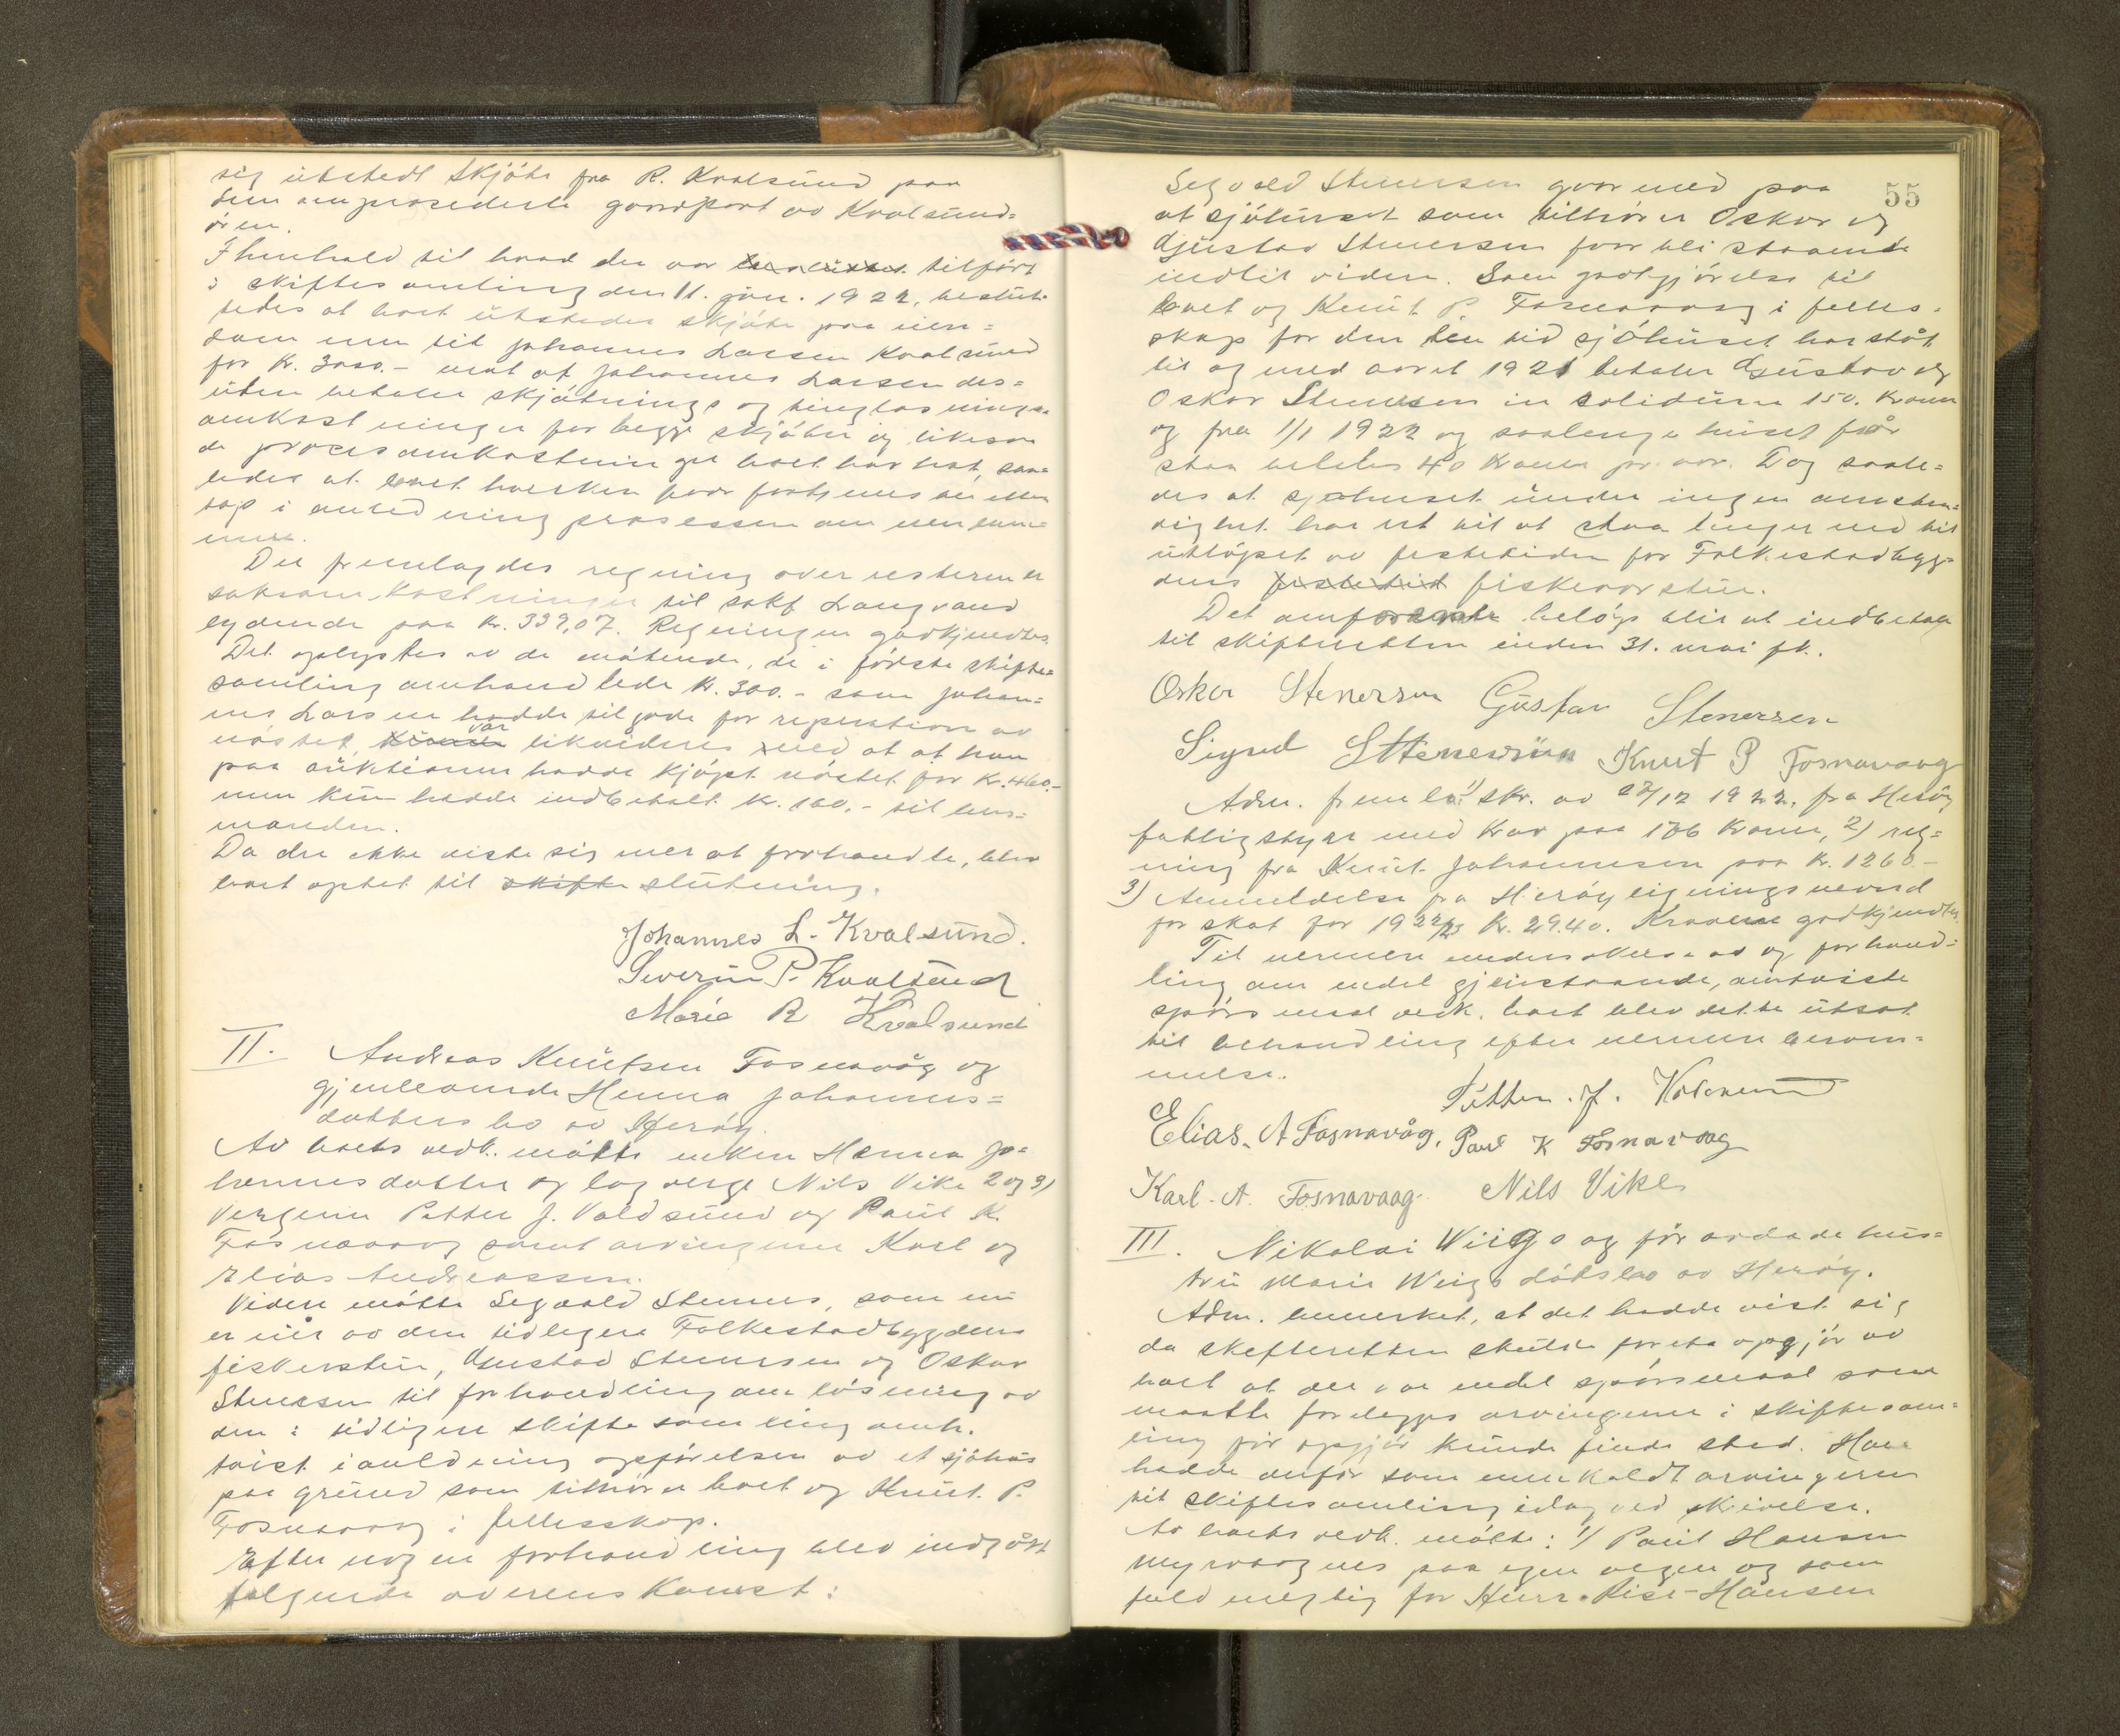 sig utstedt skjöte fra R. Kvalsund paa
den omprosederte gaardpart av Kvalsund=
ören.
I henhold til hvad der var besluttet tilfört
i skiftesamling den 11. jan. 1922, beslut-
tedes at boet utsteder skjöte paa eien=
dommen til Johannes Larsen Kvalsund
for kr. 3000.- mot at Johannes Larsen des=
uten betaler skjötnings og tinglæsnings-
omkostninger for begge skjöter og likesom
de procesomkostninger boet har hat, saa=
ledes at boet hverken faar fortjeneste eller
tap i anledning prosessen om eiendom=
men.
Der fremlagdes regning over resterende
saksomkostninger til sakf. Langvand
lydende paa kr. 339,07. Regningen godkjendtes.
Det oplystes av de mötende, de i förste skifte=
samling omhandlede kr. 300.- som Johan=
nes Larsen hadde tilgode for reperation av
nöstet, var likvideres ved at at han
paa auktionen hadde kjöpt nöstet for kr. 460.-
men kun hadde indbetalt kr. 160.- til lens=
manden.
Da der ikke viste sig mer at forhandle, blev
boet optat til skifte slutning.
Johannes L. Kvalsund.
Severin P. Kvalsund
Marie R Kvalsund
II. Andreas Knutsen Fosnavåg og
gjenlevende Hanna Johannes=
datters bo av Heröy.
Av boets vedk. mötte enken Hanna Jo=
hannesdatter og lagverge Nils Vike 2 og 3)
Vergerne Petter J. Voldsund og Paul K.
Fosnavaag samt arvingerne Karl og
Elias Andreassen.
Videre mötte Segvald Steners, som nu
er eier av den tidligere Folkestadbygdens
fiskerstue, Gustav Stenersen og Oskar
Stenersen til forhandling om lösning av
den i tidligere skiftesamling omh.
tvist i anledning opförelsen av et sjöhus
paa grund som tilhörer boet og Knut P.
Fosnavaag i fellesskap.
Efter nogen forhandling blev indgåt
følgende overenskomst:
55
Segvald Stenersen gaar med paa
at sjöhuset som tilhörer Oskar og
Gustav Stenersen faar bli staaende
indtil videre. Som godtgjörelse til
boet og Knut P. Fosnavaag i felles-
skap for den tid sjöhuset har ståt
til og med aaret 1921 betaler Gustav og
Oskar Stenersen in solidum 150. kroner
og fra 1/1 1922 og saalenge huset får
staa betales 40 kroner pr. aar. Dog saale=
des at sjøhuset under ingen omsten=
dighet har ret til at staa lenger end til
utlöpet av festetiden for Folkestadbyg=
dens festetid fiskevorstue.
Det omforente belöp blir at indbetale
til skifteretten inden 31. mai fk.
Oskar Stenersen Gustav Stenersen
Sigvald Stenersen Knut P Fosnavaag
Adm. fremla 1) skr. av 27/12 1922, fra Heröy
fattigstyre med krav paa 106 kroner, 2) reg=
ning fra Knut Johannesen paa kr. 1260.-
3) Anmeldelse fra Heröy ligningsnevnd
for skat for 1922/23 kr. 29.40. Kravene godkjendtes.
Til nermere undersökelse av og forhand=
ling om endel gjenstaaende, omtviste
spörsmaal vedk. boet blev dette utsat
til behandling efter nermere beram=
melse.
Petter. J. Voldsund
Elias. A Fosnavåg. Paul K Fosnavaag
Karl. A. Fosnavaag. Nils Vike
III. Nikolai Wiig o og för avdøde hus=
tru Marie Wiigs dödsbo av Heröy.
Adm. bemerket, at det hadde vist sig
da skifteretten skulde foreta opgjör av
boet at der var endel spörsmaal som
maatte forelegges arvingerne i skiftesam=
ling för opgjör kunde finde sted. Han
hadde derfor sammenkaldt arvingerne
til skiftesamling idag ved skrivelse.
Av boets vedk. mötte: 1/ Paul Hansen
Myrvaagnes paa egne vegne og som
fuldmegtig for Herr. Rise-Hansen